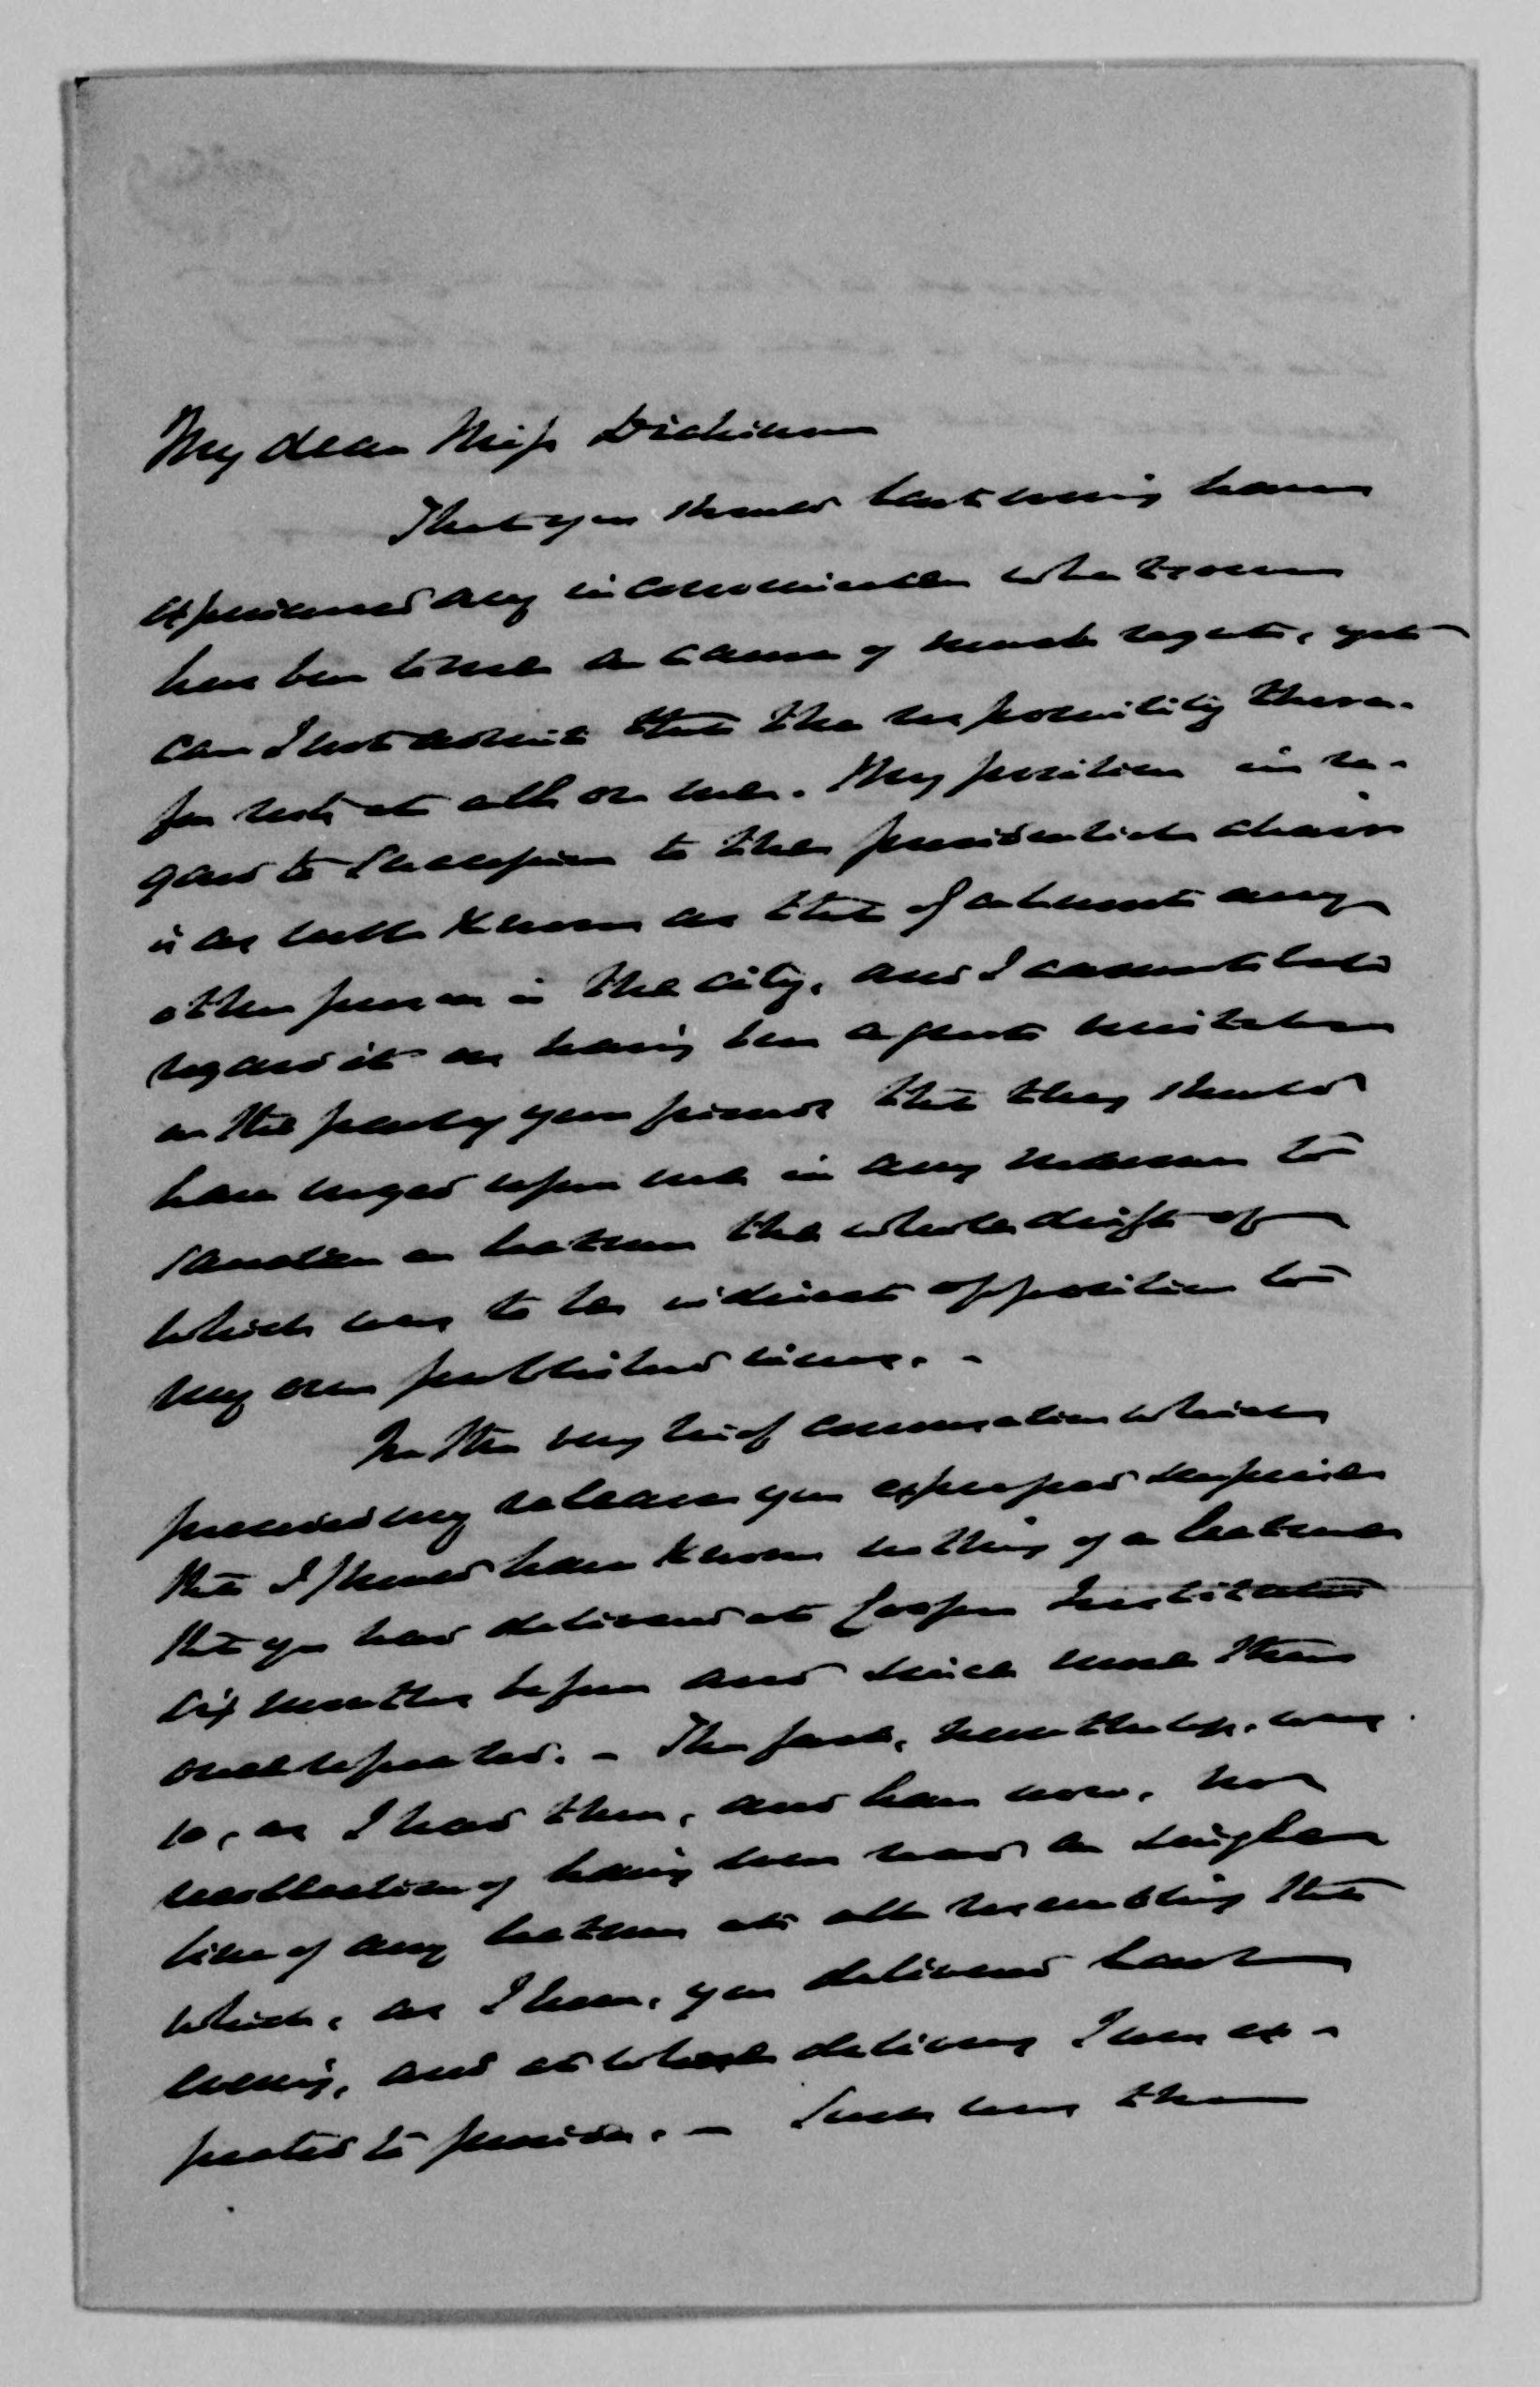 My dear Miss Dickinson
That you should last evening have
experienced any inconvenience whatever
has been to me a cause of much regret, yet
can I not admit that the responsibility there-
for rests at all on me. My position in re-
gard to succession to the presidential chair
is as well known as that of almost any
other person in the city, and I cannot but
regard it as having been a great mistake
on the part of your friends that they should
have urged upon me in any manner to
sanction a lecture the whole drift of
which was to be in direct opposition to
my own published views. -
In the very brief conversation which
preceded my release you expressed surprise
that I should have known nothing of a lecture
that you had delivered at Cooper Institute
six months before and since more than
once repeated. - The fact, nevertheless, was
so, as I had then, and have now, no
recollection of having ever read a single
line of any lecture at all resembling that
which, as I hear, you delivered last
evening, and at whose delivery I was ex-
pected to preside. - Such was the